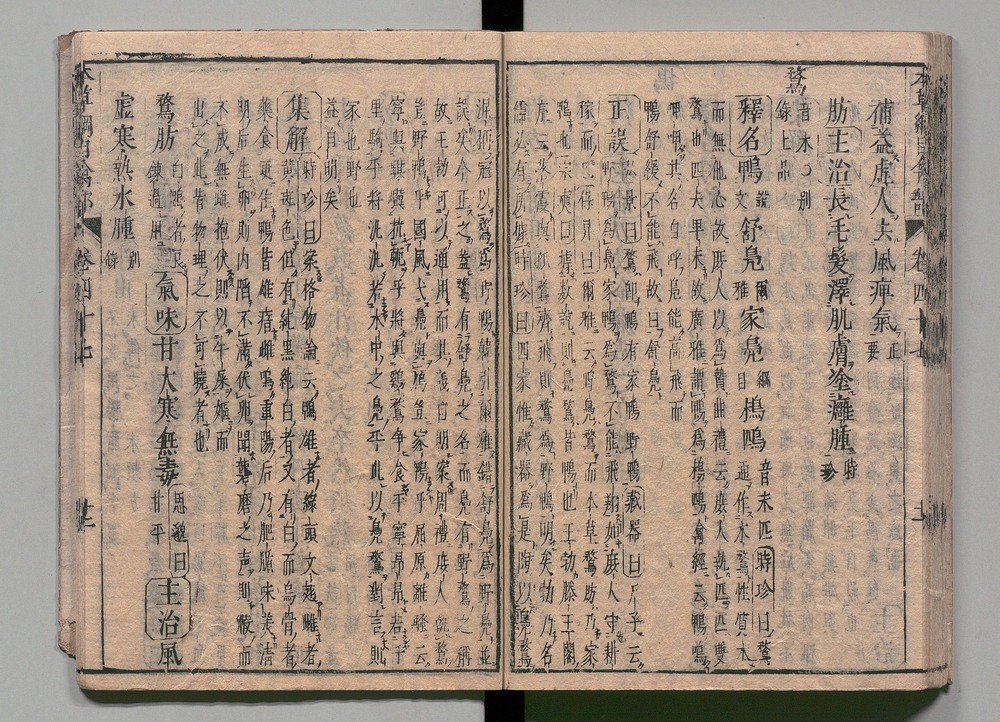 本草綱目禽部 卷四十七 十二
補益虛人去風痺氣 正要
肪主治長毛髮澤肌膚塗癰腫 時珍
鶩 音木〇別錄上品
釋名鴨 說文 舒鳧 爾雅 家鳧 綱目 音末匹 時珍曰鶩
通作木鶩性質木
而無他心故庶人以為贄曲禮云庶人執匹匹雙
鶩也匹夫卑末故廣雅謂鴨為 禽經云鴨鳴
呷呷其名自呼鳧能高飛而
鴨舒緩不能飛故曰舒鳧
正誤 弘景曰鶩即鴨有家鴨野鴨藏器曰尸子云
野鴨為鳧家鴨為鶩不能飛翔如庶人守耕
稼而已保昇曰爾雅云野鳧鶩而本草鶩肪乃家
鴨也宗奭曰據數說則鳧鶩皆鴨也王勃滕王閣
序云落霞與孤鶩齊飛則鶩為野鴨明矣勃乃名
儒必有所據時珍曰四家惟藏器為是陶以鳧鶩
混稱寇以鶩為野鴨韓引爾雅錯舒鳧為野鳧並
誤矣今正之蓋鶩有舒鳧之名而鳧有野鶩之稱
故王勃可以通用而其義自明案周禮庶人執鶩
豈野鴨乎國風弋鳧與鴈豈家鴨乎屈原離騷云
寧與騏驥抗軛乎將與鷄鶩爭食乎寧昂昂若千
里駒乎將泛泛若水中之鳧乎此以鳧鶩對言則
家也野也
益自明矣
集解 時珍曰案格物論云鴨雄者綠頭文翅雌者
黃斑色但有純黑純白者又有白而烏骨者
藥食更佳鴨皆雄瘖雌鳴重陽后乃肥腯味美清
明后生卵則內陷不滿伏卵聞礱磨之声則毈而
不成無雌抱伏則以牛屎嫗而
出之此皆物理之不可曉者也
鶩肪 白鴨者良鍊過用 氣味甘大寒無毒 思邈曰甘平 主治風
虛寒熱水腫 別錄
本草綱目禽部 卷四十七 十二